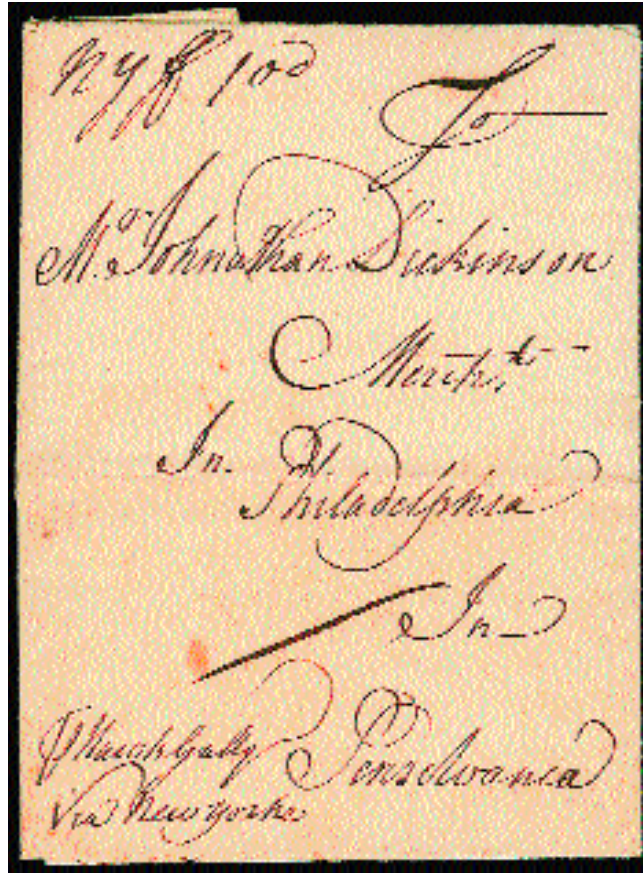 NY 10d
To
Mr. Johnathan Dickinson
Mercht.
In
Philadelphia
In
Pensilvania
Gally
Via New york